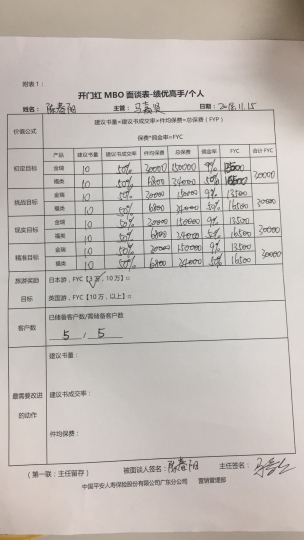 附表1：
开门红 MBO 面谈表-绩优高手/个人
姓名： 陈春阳 主管： 日期：2018.11.15
价值公式 建议书量×建议书成交率×件均保费=总保费（FYP）
保费*佣金率=FYC
产品 建议书量 建议书成交率 件均保费 总保费 佣金率 FYC 合计 FYC
初定目标 金瑞 10 50% 30000 150000 9% 30000
福类 10 50% 6800 34000 50%
挑战目标 金瑞 10 50% 30000 150000 9% 13500 30000
福类 10 50% 6800 34000 50% 16500
现实目标 金瑞 10 50% 30000 150000 9% 13500 30000
福类 10 50% 6800 34000 50% 16500
精准目标 金瑞 10 50% 30000 150000 9% 13500 30000
福类 10 50% 6800 34000 50% 16500
旅游奖励目标 日本游，FYC【3万，10万】□
英国游，FYC【10万，以上】□
客户数 已储备客户数/需储备客户数
5 / 5
最需要改进的动作 建议书量：
建议书成交率：
件均保费：
（第一联：主任留存） 被面谈人签名：陈春阳 主任签名：
中国平安人寿保险股份有限公司广东分公司 营销管理部